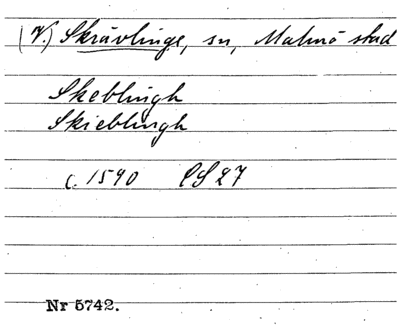 (V.) Skrävlinge, sn, Malmö stad
Skeblingh
Skieblingh
c. 1590 PS 27
Nr 5742.